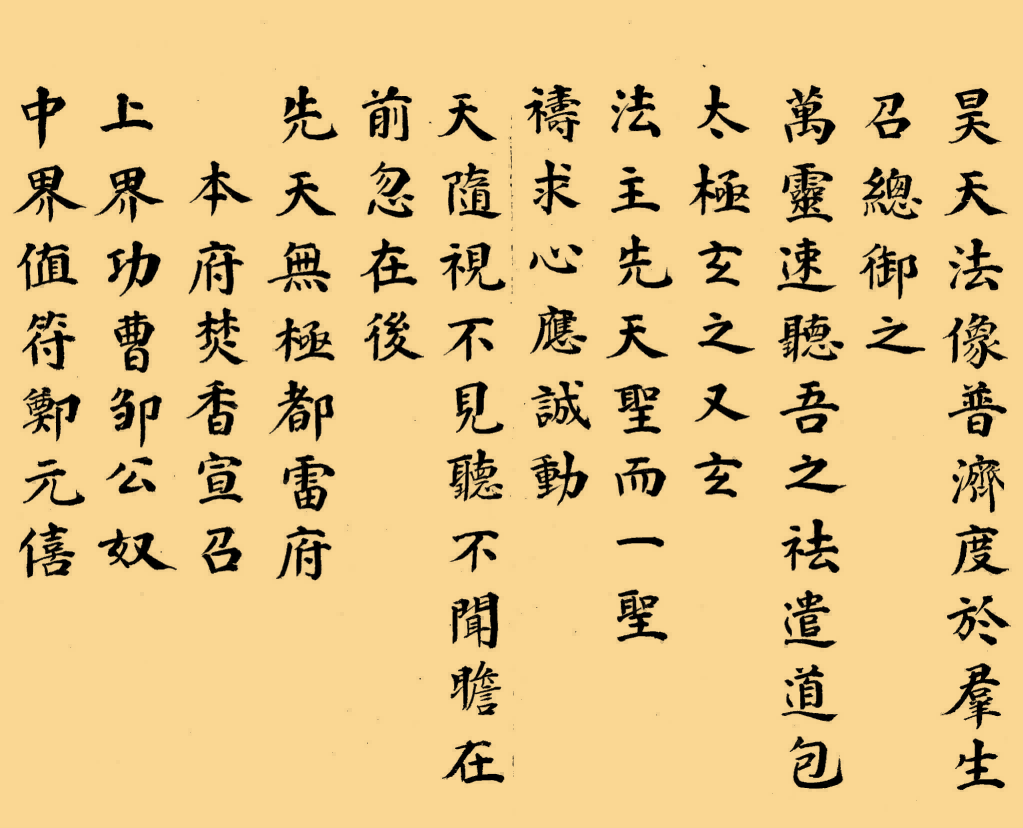 昊天法像普濟度於羣生
召總御之
萬靈速聽吾之祛遣道包
太極玄之又玄
法主先天聖而一聖
禱求心應誠動
天隨視不見聽不聞瞻在
前忽在後
先天無極都雷府
本府焚香宣召
上界功曹邹公奴
中界值符鄭元僖